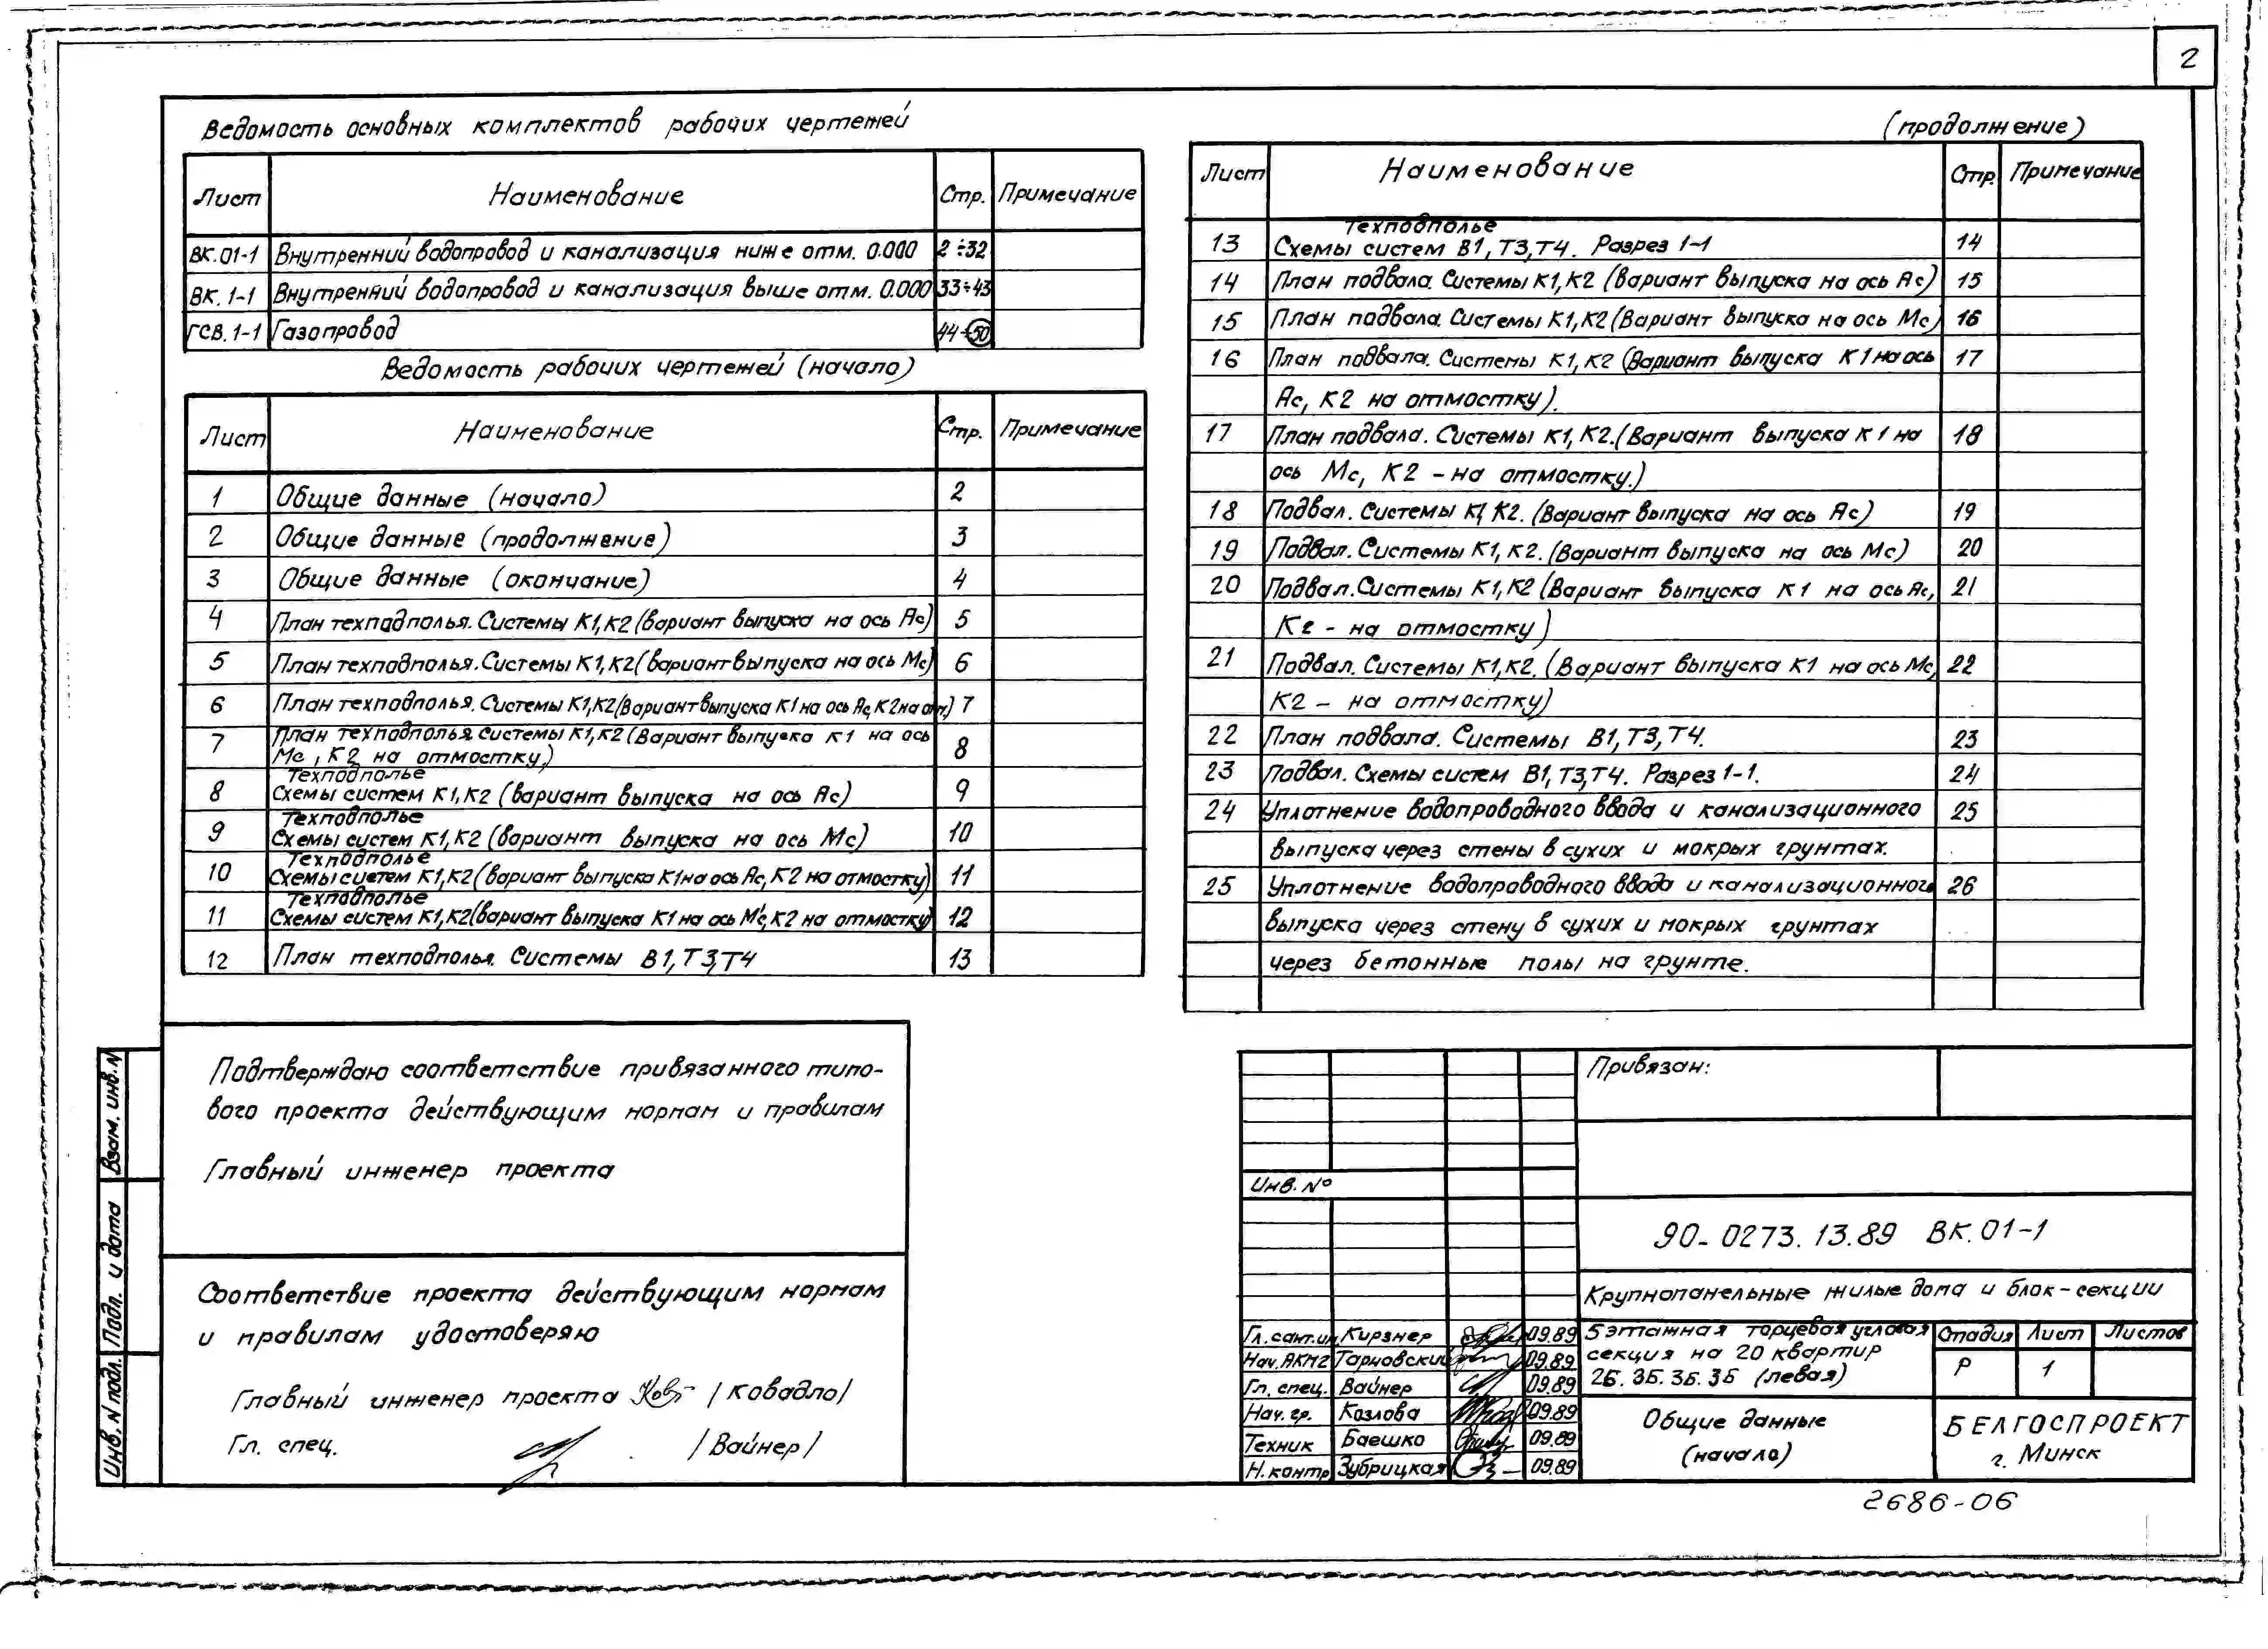 2
Ведомость основных комплектов рабочих чертежей
Лист Наименование Стр. Примечание
ВК.01-1 Внутренний водопровод и канализация ниже отм. 0.000 2÷32
ВК.1-1 Внутренний водопровод и канализация выше отм. 0.000 33÷43
ГСВ.1-1 Газопровод 44÷50
Ведомость рабочих чертежей (начало)
Лист Наименование Стр. Примечание
1 Общие данные (начало) 2
2 Общие данные (продолжение) 3
3 Общие данные (окончание) 4
4 План техподполья. Системы К1,К2 (вариант выпуска на ось Ас) 5
5 План техподполья. Системы К1,К2 (вариант выпуска на ось Мс) 6
6 План техподполья. Системы К1,К2 (Вариант выпуска К1 на ось Ас, К2 на отм.) 7
7 План техподполья. Системы К1,К2 (Вариант выпуска К1 на ось
Мс, К2 на отмостку) 8
Техподполье
8 Схемы систем К1,К2 (вариант выпуска на ось Ас) 9
Техподполье
9 Схемы систем К1,К2 (вариант выпуска на ось Мс) 10
Техподполье
10 Схемы систем К1,К2 (вариант выпуска К1 на ось Ас, К2 на отмостку) 11
Техподполье
11 Схемы систем К1,К2 (вариант выпуска К1 на ось Мс, К2 на отмостку) 12
12 План техподполья. Системы В1,Т3,Т4 13
(продолжение)
Лист Наименование Стр. Примечание
Техподполье
13 Схемы систем В1,Т3,Т4. Разрез 1-1 14
14 План подвала. Системы К1,К2 (Вариант выпуска на ось Ас) 15
15 План подвала. Системы К1,К2 (Вариант выпуска на ось Мс) 16
16 План подвала. Системы К1,К2 (Вариант выпуска К1 на ось 17
Ас, К2 на отмостку).
17 План подвала. Системы К1,К2. (Вариант выпуска К1 на 18
ось Мс, К2 - на отмостку.)
18 Подвал. Системы К1 К2. (Вариант выпуска на ось Ас) 19
19 Подвал. Системы К1,К2. (Вариант выпуска на ось Мс) 20
20 Подвал. Системы К1,К2 (Вариант выпуска К1 на ось Ас, 21
К2 - на отмостку)
21 Подвал. Системы К1,К2. (Вариант выпуска К1 на ось Мс, 22
К2 - на отмостку)
22 План подвала. Системы В1,Т3,Т4. 23
23 Подвал. Схемы систем В1,Т3,Т4. Разрез 1-1. 24
24 Уплотнение водопроводного ввода и канализационного 25
выпуска через стены в сухих и мокрых грунтах.
25 Уплотнение водопроводного ввода и канализационного 26
выпуска через стену в сухих и мокрых грунтах
через бетонные полы на грунте.
Подтверждаю соответствие привязанного типо-
вого проекта действующим нормам и правилам
Главный инженер проекта
Соответствие проекта действующим нормам
и правилам удостоверяю
Главный инженер проекта /Ковадло/
Гл. спец. /Вайнер/
Взам. инв. N
Подп. и дата
Инв. N подл.
Привязан:
Инв. №
90-0273.13.89 ВК.01-1
Крупнопанельные жилые дома и блок-секции
Гл. сант.ин. Кирзнер 09.89
Нач. АКМ2 Тарновский 09.89
Гл. спец. Вайнер 09.89
Нач. гр. Козлова 09.89
Техник Баешко 09.89
Н. контр Зубрицкая 09.89
5 этажная торцевая угловая
секция на 20 квартир
2Б.3Б.3Б.3Б (левая)
Стадия Лист Листов
Р 1
Общие данные
(начало)
БЕЛГОСПРОЕКТ
г. Минск
2686-06